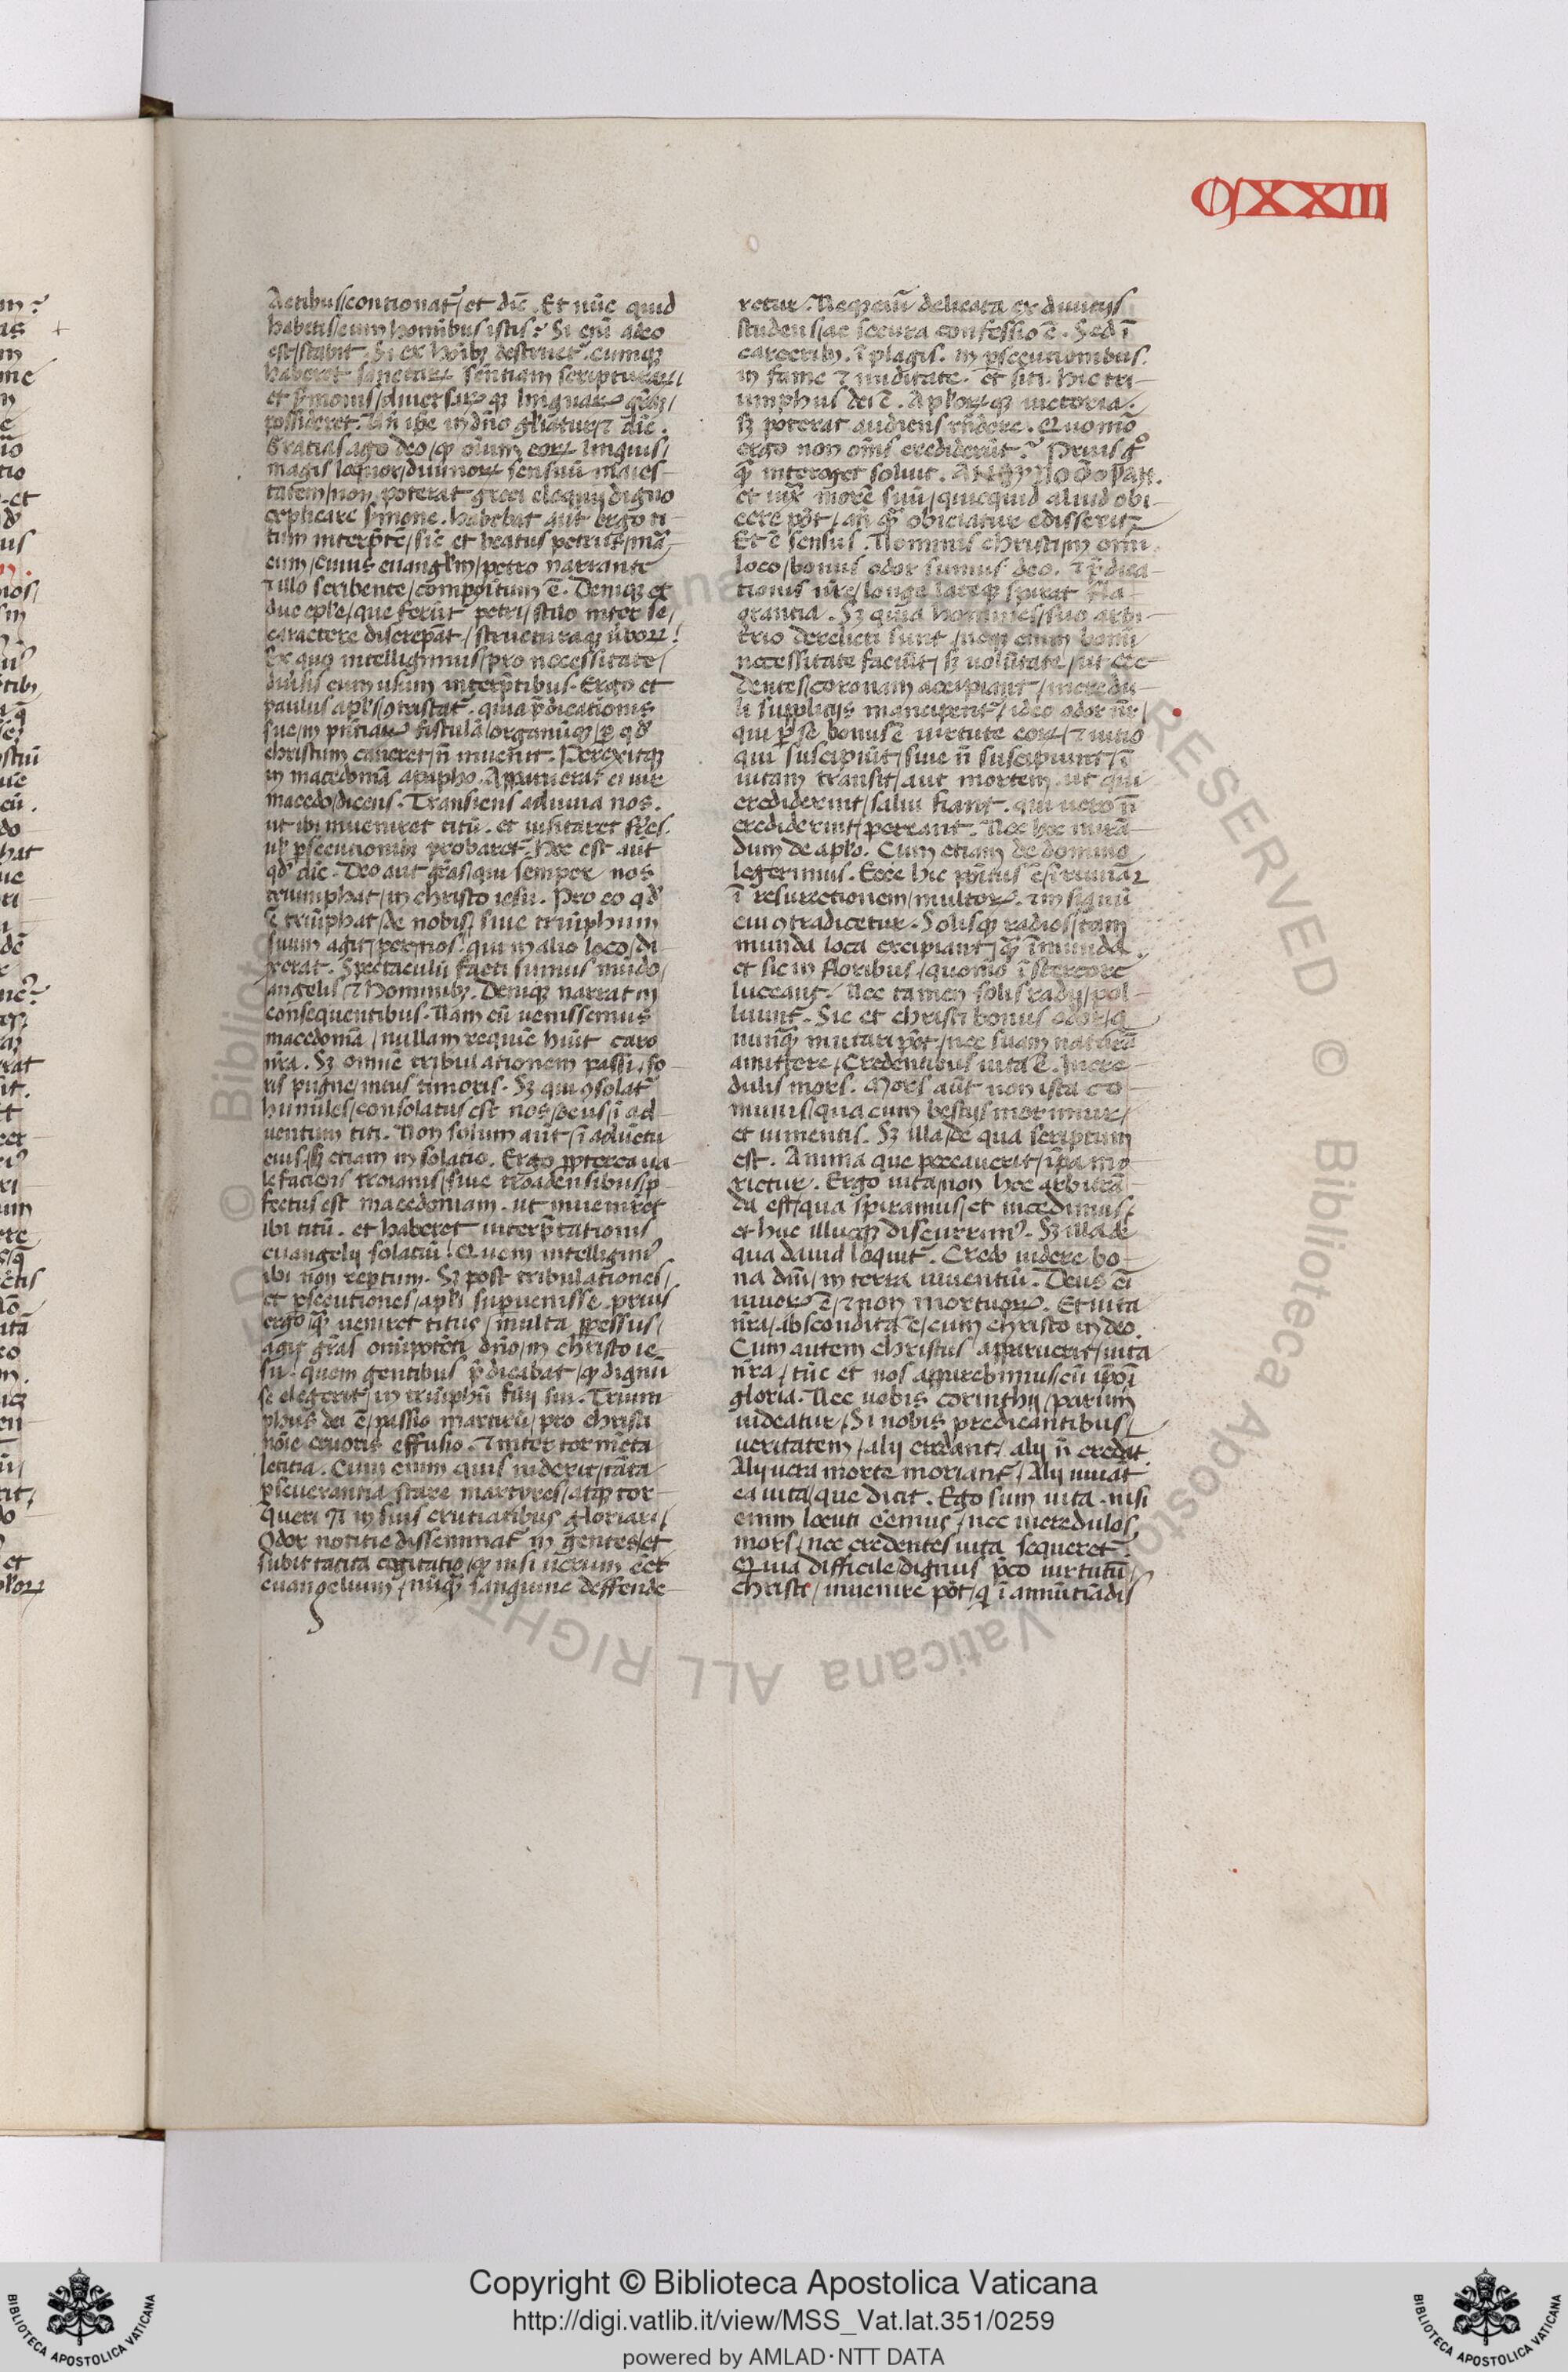 CXXIII
Actibus/contionat᷑/et dic̄. Et nūc quid
habetis/cum hominibus istis? Si eni᷑ a deo
est/stabit. Si ex hoib; destruet᷑. cumq;
haberet sanctaꝝ sentiam scripturaꝝ/
et s̄monis/diuersaꝝ q; linguaꝝ gr̄am/
possideret. Un̄ ipse in dn̄o gl̄iatur/⁊ dic̄.
Gratias ago deo/qꝫ oīum eoꝝ linguis/
magis loquor/diuinoꝝ sensuū maies-
tatem/non poterat greci eloquij digno
explicare s̄mone. habebat aūt ergo ti-
tum interp̄te/sic et beatus petrus/mar̄-
cum/cuius euangl̄m/petro narrante
⁊ illo scribente/compositum ē. Deniq; et
due ep̄le/que ferūt᷑ petri/stilo inter se/
caractere discrepāt/structuraq; ūboꝝ!
Ex quo intelligimus/pro necessitate/
diuersis eum usum interp̄tibus. Ergo et
paulus apl̄s/ɔtristat᷑. quia p̄dicationis
sue/in pn̄tiaꝝ fistulā/organūq;/ꝑ qd̄
christum caneret/n̄ inuen̄it. Perexitq;
in macedoniā
macedo/dicens. Transiens adiuua nos.
ut ibi inueniret titū. et uisitaret fr̄es.
ul̄ p̄secutionib; probaret᷑. Hoc est aut
qd̄ dic̄. Deo aut gr̄as/qui semper nos
triumphat/in christo iesu. Pro eo qd̄
ē triūphat/de nobis/siue triūphum
suum agit/per nos. qui in alio loco/di-
xerat. Spectaculū facti sumus mūdo/
angelis/⁊ hominib;. Deniq; narrat in
consequentibus. Nam cū uenissemus
macedoniā/nullam requiē hūit caro
nr̄a. Sꝫ omnē tribulationem passi/fo-
ris pugne/intus timoris. Sꝫ qui ɔsolat᷑
humiles/consolatus est nos/deus/ī ad-
uentum titi. Non solum aūt/ī aduētu
eius/sꝫ etiam in solatio. Ergo ꝓpterea ua-
le faciens troianis/siue troadensibus/ꝓ-
fectus est macedoniam. ut inueniret
ibi titū. et haberet interp̄tationis
euangelij solatiū! Quem intelligimꝰ
ibi non reptum. Sꝫ post tribulationes/
et p̄secutiones/apl̄i superuenisse. prius
ergo/qꝫ ueniret titus/multa ꝓpessus/
agit gr̄as omipotēti dn̄o/in christo ie-
su. quem gentibus p̄dicabat/qꝫ dignū
se elegerit/in triūphū filij sui. Trium-
phus dei ē/passio martirū/pro christi
noīe cruoris effusio. ⁊ inter tormēta
letitia. Cum enim quis uiderit/tāta
ꝑseuerantia stare martyres/atq; tor-
queri ⁊ī in suis cruciatibus gloriari/
Odor notitie disseminat᷑ in gentes/et
subit tacita cogitatio/qꝫ nisi uerum eēt
euangelium/nūqꝫ sanguine deffende-
retur. Neq; eni᷑ delicata ex diuitijs
studens/ac secura confessio ē. Sed ī
carcerib;. ī plagis. in p̄secutionibus.
in fame ⁊ nuditate. et siti. hic tri-
umphus dei ē. Apl̄oꝝ q; uictoria.
sꝫ poterat audiens rn̄dere. Quomō
ergo non om̄s crediderūt? Prius gͦ
qꝫ interoget soluit.
et iux̄ morē suū/quicquid aliud obi-
cere pōt/an̄ qꝫ obiciatur edisserit.
Et ē sensus. Nominis christi/in omī
loco/bonus odor sumus deo. ⁊ p̄dica-
tionis nr̄e/longe lateq; spirat fla-
grantia. Sꝫ quia homines/suo arbi-
trio derelicti sunt/neq; enim bonū
necessitate faciūt/sꝫ uolūtate/ut cre-
dentes/coronam accipiant/incredu-
li supplicijs mancipent᷑/ideo odor nr̄/
qui ꝑ se bonus ē uirtute eoꝝ/⁊ uitio
qui suscipiūt/siue n̄ suscipiunt/ī
uitam transit/aut mortem. ut qui
crediderint/salui fiant. qui uero n̄
crediderint/pereant. Nec hoc mirā-
dum de apl̄o. Cum etiam de domino
legerimus. Ecce hic positus ē/ī ruinā ⁊
ī resurrectionem/multoꝝ. ⁊ in signū
cui ɔtradicetur. Solisq; radios/tam
munda loca excipiant/qꝫ īmunda.
et sic in floribus/quomō ī stercore
luceant. Nec tamen solis radij/pol-
luunt᷑. Sic et christi bonus odor/q
nunqꝫ mutari pōt/nec suam naturā
amittere/Credentibus uita ē. Incre-
dulis mors. Mors aūt non ista co-
munis/qua cum bestijs morimur/
et iumentis. Sꝫ illa/de qua scriptum
est. Anima que peccauerit/ip̄a mo-
rietur. Ergo uita/non hec arbitrā-
da est/qua spiramus/et incedimus/
et huc illucq; discurrimꝰ. Sꝫ illa de
qua dauid loquit᷑. Credo uidere bo-
na dn̄i/in terra uiuentiū. Deus ei᷑
uiuoꝝ ē/⁊ non mortuoꝝ. Et uita
nr̄a/abscondita ē/cum christo in deo.
Cum autem christus apparuerit/uita
nr̄a/tūc et nos apparebimus/cū ip̄o ī
gloria. Nec uobis corinthij/parum
uideatur/Si nobis predicantibus/
ueritatem/alij credant/alij n̄ credāt.
Alij uera morte moriant᷑/Alij uiuāt
ea uita/que dicit. Ego sum uita. nisi
enim locuti eēmus/nec incredulos/
mors/nec credentes uita sequeret᷑.
Quia difficile/dignus p̄co uirtutū/
christi/inuenire pōt/q ī annūtiādis
Copyright © Biblioteca Apostolica Vaticana
http://digi.vatlib.it/view/MSS_Vat.lat.351/0259
powered by AMLAD·NTT DATA